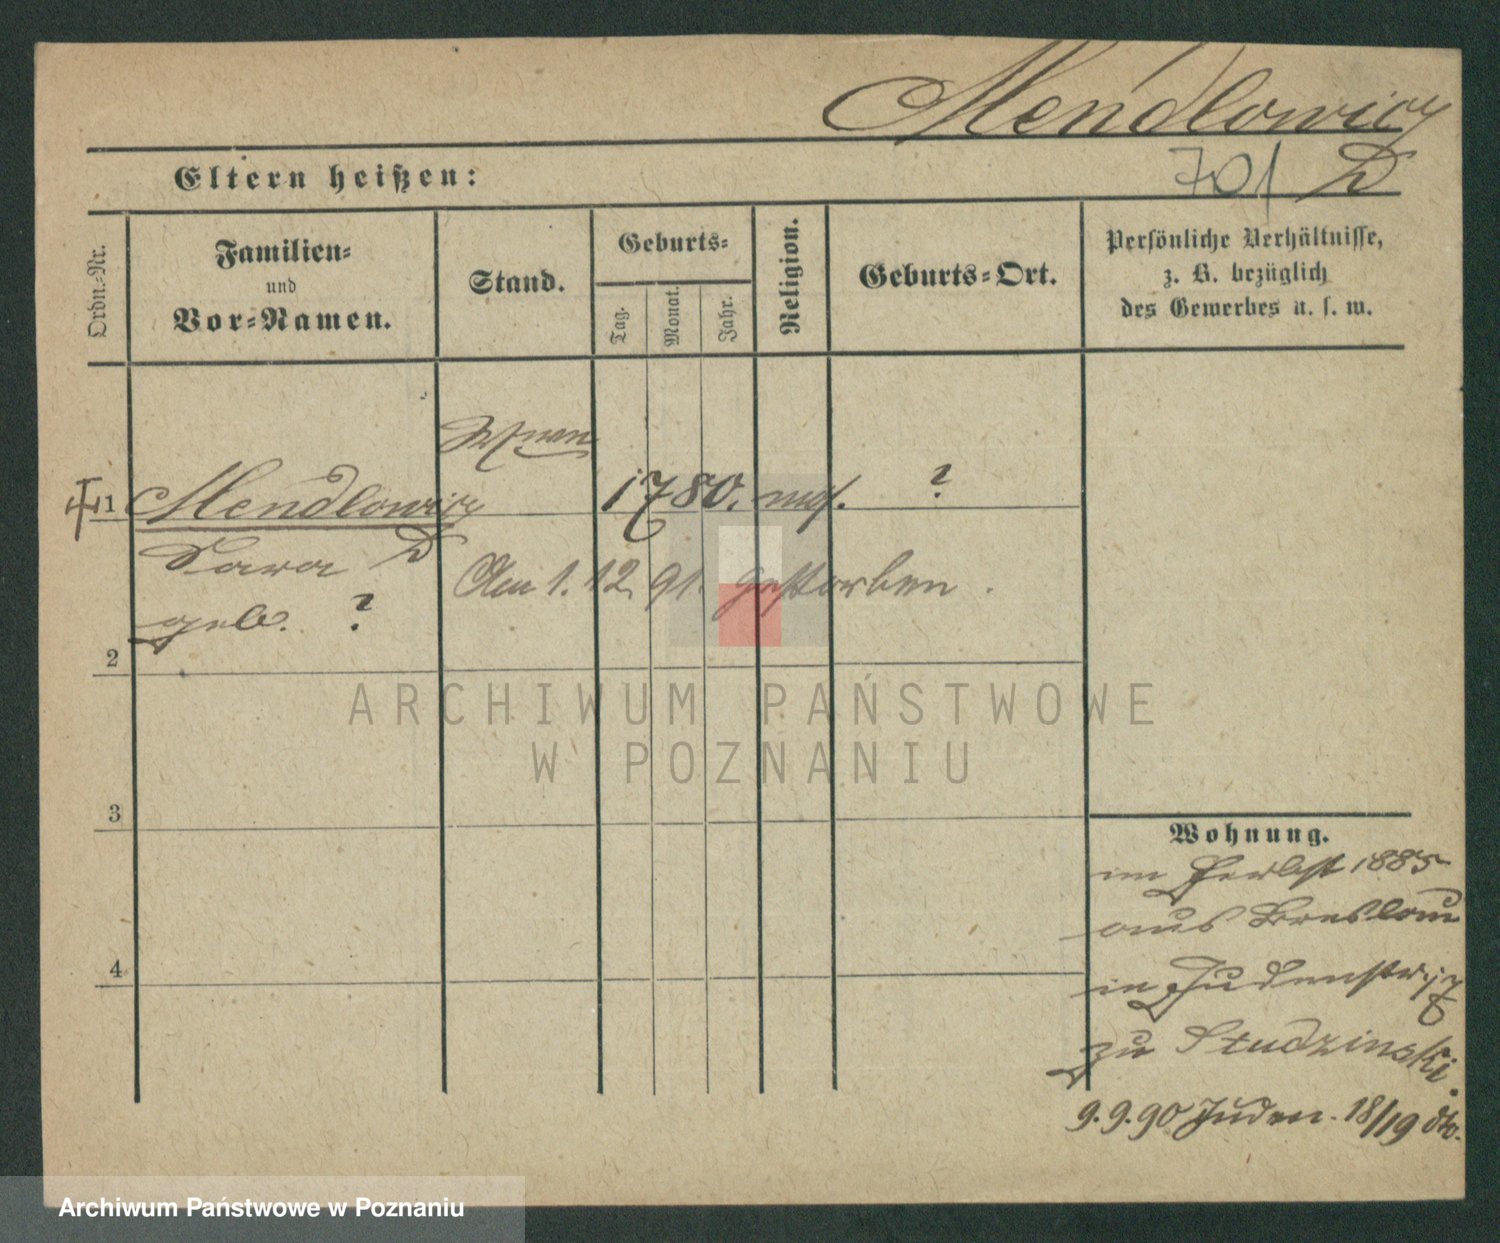 Mendlowicz
701 D
Eltern heißen:
Ordn.-Nr.
Familien-
und
Vor-Namen.
Stand.
Geburts-
Tag.
Monat.
Jahr.
Religion.
Geburts-Ort.
Persönliche Verhältnisse,
z. B. bezüglich
des Gewerbes u. s. w.
Wwe
1 Mendlowicz 1780. mos. ?
Sara D
Am 1. 12. 91. gestorben.
geb. ?
2
3
4
Wohnung.
im Herbst 1885
aus Breslau
in Judenstr. 17
zu Studzinski.
9.9.90 Juden. 18/19 dto.
ARCHIWUM PAŃSTWOWE
W POZNANIU
Archiwum Państwowe w Poznaniu